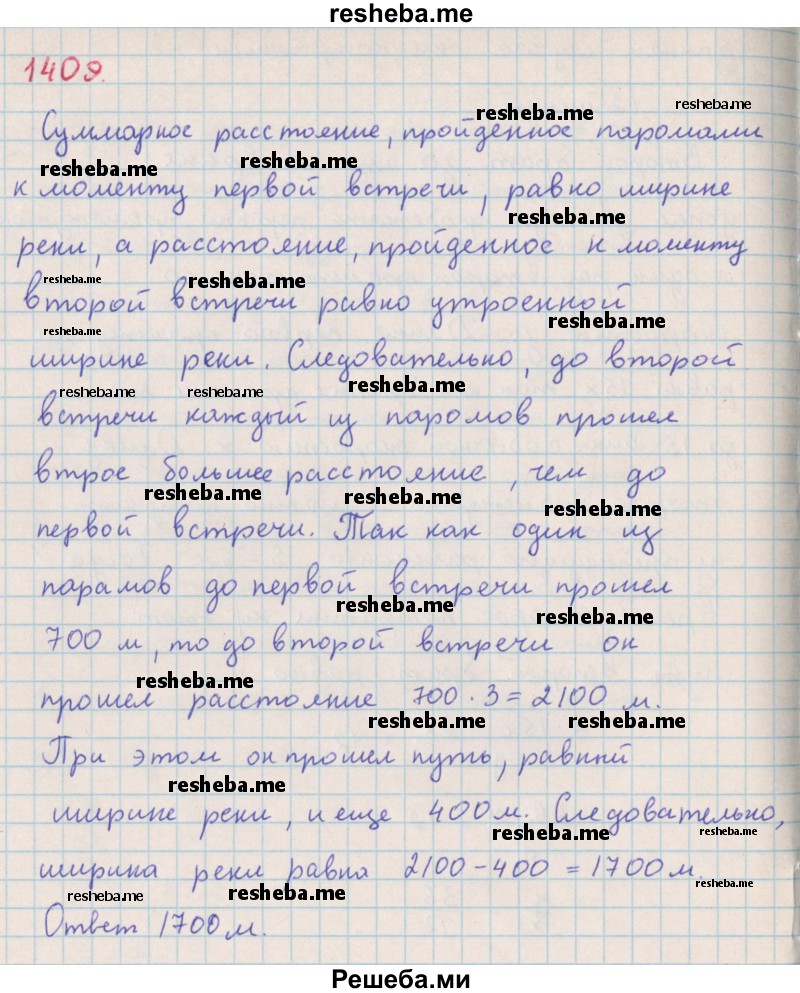 resheba.me
1409.
resheba.me
resheba.me
Суммарное расстояние, пройденное паромами
resheba.me
resheba.me
к моменту первой встречи, равно ширине
resheba.me
реки, а расстояние, пройденное к моменту
resheba.me
resheba.me
второй встречи равно утроенной
resheba.me
resheba.me
ширине реки. Следовательно, до второй
resheba.me
resheba.me
resheba.me
встречи каждый из паромов прошел
втрое большее расстояние, чем до
resheba.me
resheba.me
resheba.me
первой встречи. Так как один из
парамов до первой встречи прошел
resheba.me
resheba.me
700 м, то до второй встречи он
resheba.me
прошел расстояние 700 · 3 = 2100 м.
resheba.me
resheba.me
При этом он прошел путь, равный
resheba.me
ширине реки, и еще 400 м. Следовательно,
resheba.me
resheba.me
ширина реки равна 2100 - 400 = 1700 м.
resheba.me
resheba.me
resheba.me
Ответ 1700 м.
Решеба.ми